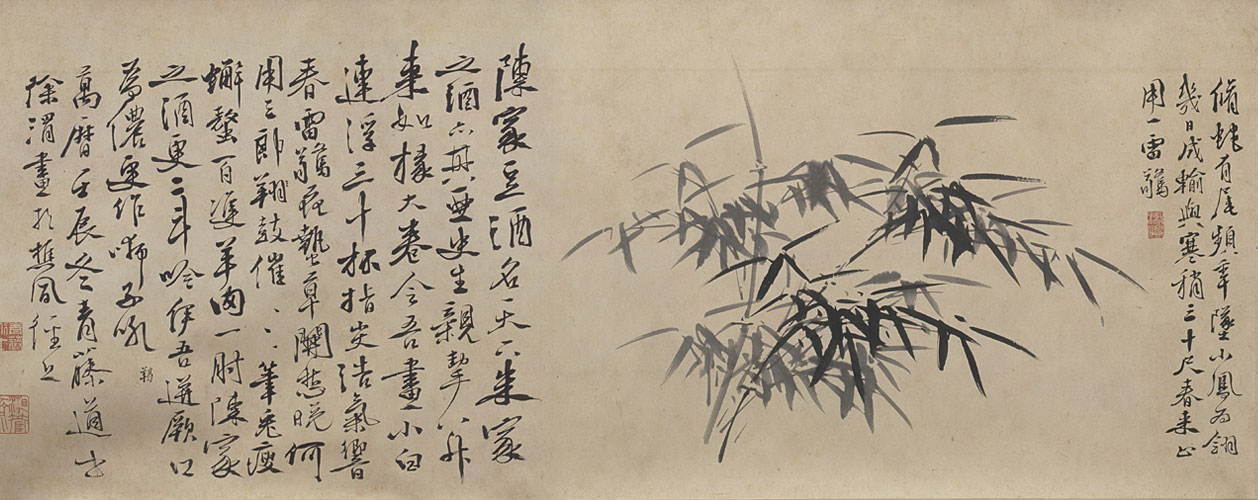 脩蛇有尾頻年墜小鳳為翎
幾日成輸與寒稍三十尺春來止
用一雷驚
陳家豆酒名天下朱家
之酒亦其亞史生親挈八升
來如椽大卷令吾畫小白
連浮三十杯指尖浩氣響
春雷驚花蟄草開愁晚何
用三郎翔鼓催〻〻筆兔瘦
蠏螯百雙羊肉一肘陳家
之酒更二斗吟伊吾迸厥口
為儂更作獅子吼
羯
萬曆壬辰冬青藤道士
徐渭畫於樵風徑上